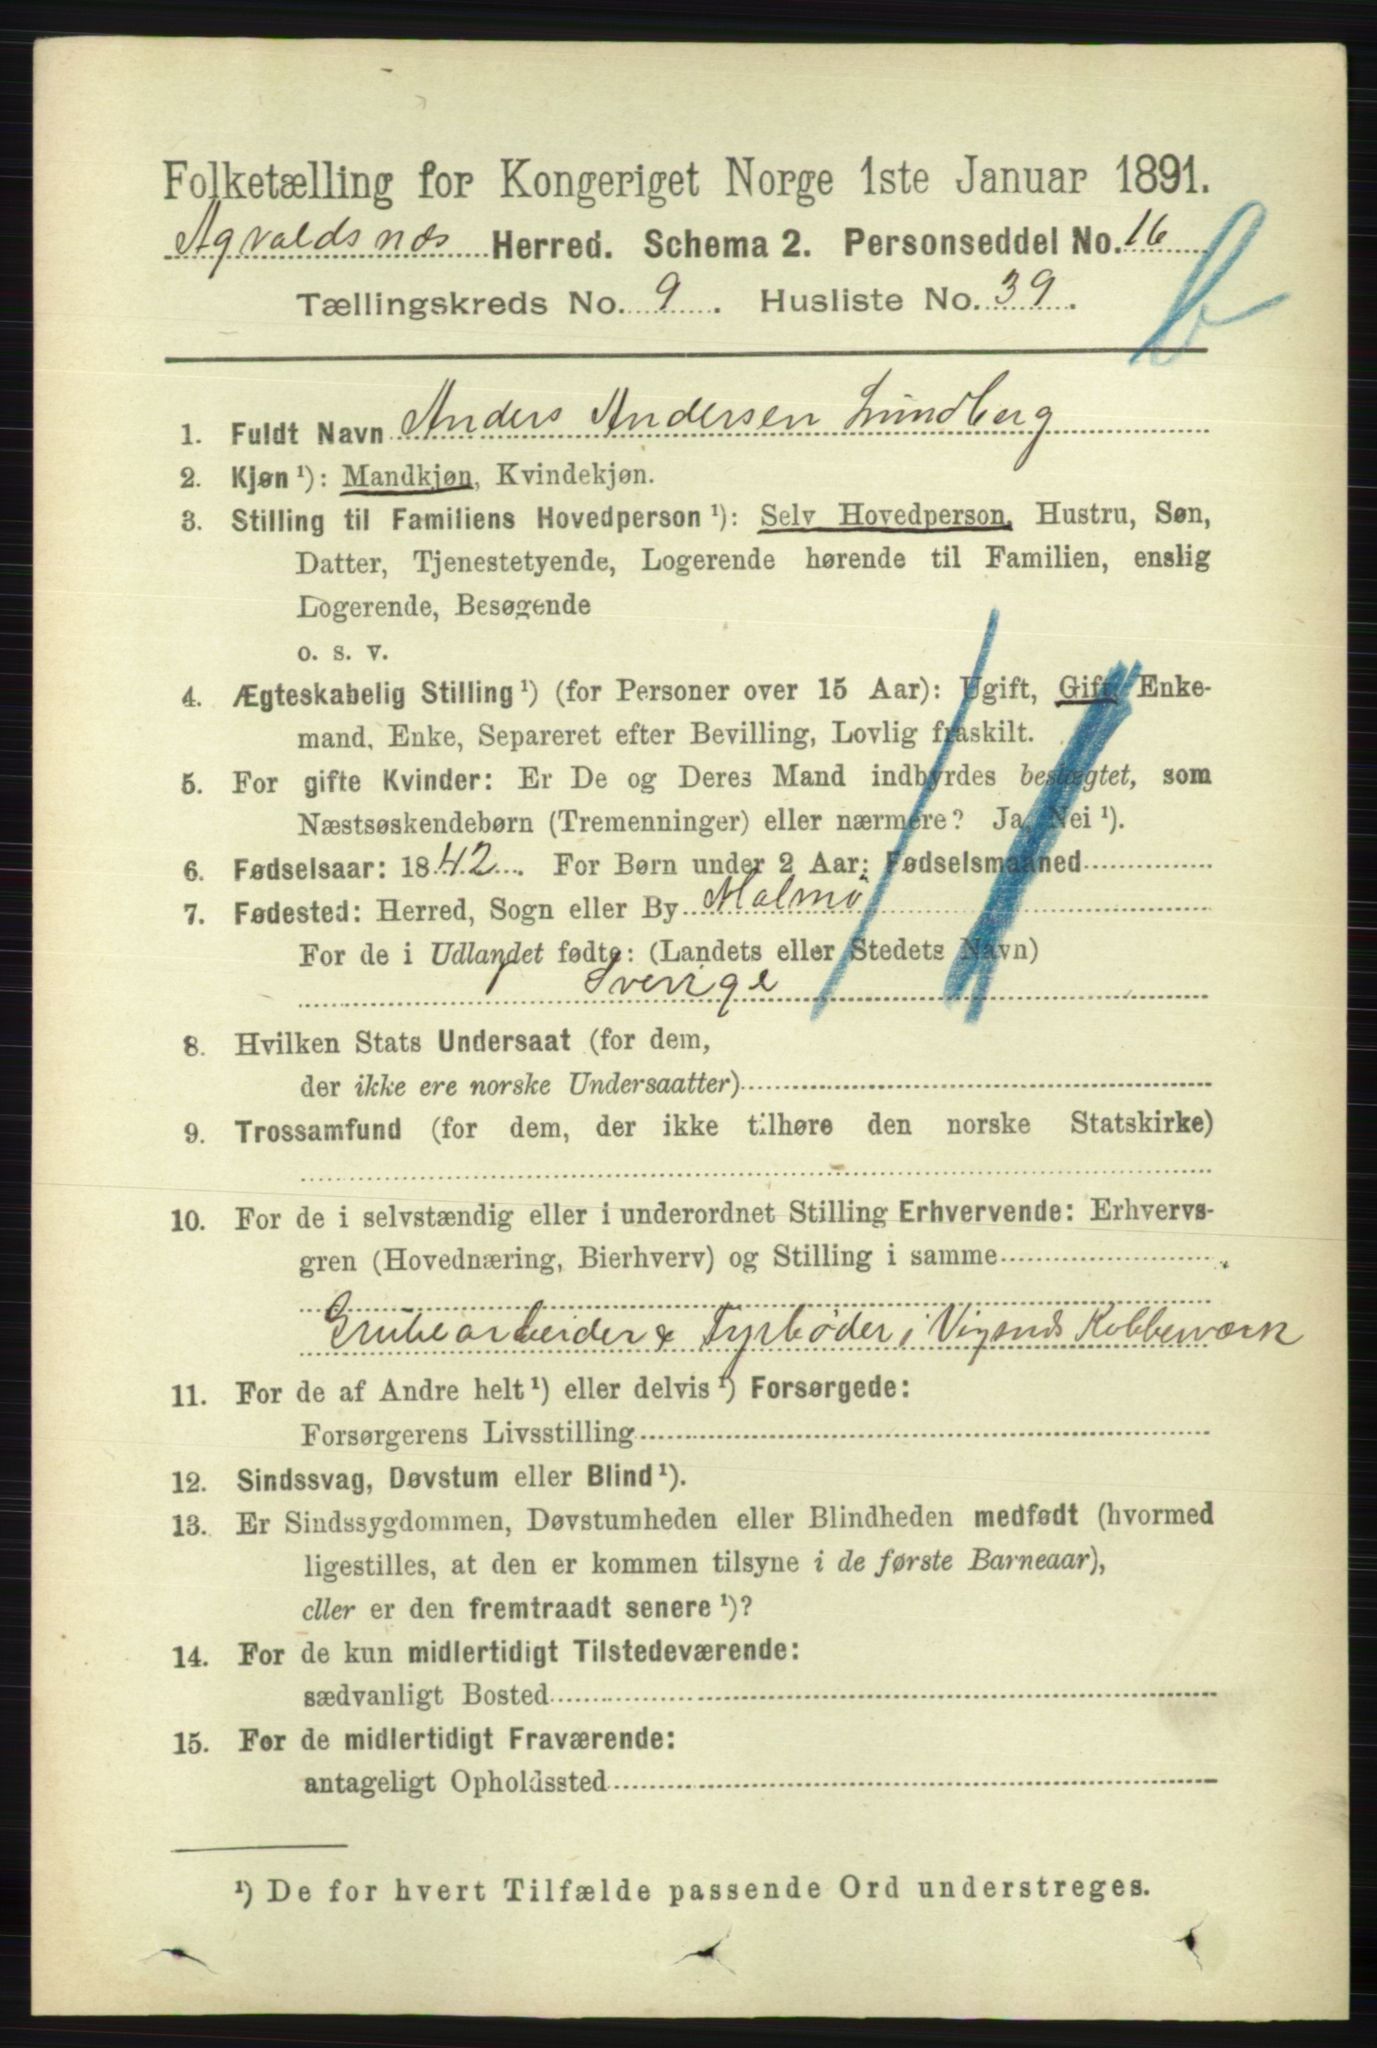 Folketælling for Kongeriget Norge 1ste Januar 1891.
Agvaldsnæs Herred. Schema 2. Personseddel No. 16
Tællingskreds No. 9. Husliste No. 39.
b
1. Fuldt Navn Anders Andersen Lundberg
2. Kjøn ¹): Mandkjøn, Kvindekjøn.
3. Stilling til Familiens Hovedperson ¹): Selv Hovedperson, Hustru, Søn,
Datter, Tjenestetyende, Logerende hørende til Familien, enslig
Logerende, Besøgende
o. s. v.
4. Ægteskabelig Stilling ¹) (for Personer over 15 Aar): Ugift, Gift, Enke-
mand, Enke, Separeret efter Bevilling, Lovlig fraskilt.
5. For gifte Kvinder: Er De og Deres Mand indbyrdes beslægtet, som
Næstsøskendebørn (Tremenninger) eller nærmere? Ja, Nei ¹).
6. Fødselsaar: 1842. For Børn under 2 Aar: Fødselsmaaned
7. Fødested: Herred, Sogn eller By Malmö
For de i Udlandet fødte: (Landets eller Stedets Navn)
Sverige
8. Hvilken Stats Undersaat (for dem,
der ikke ere norske Undersaatter)
9. Trossamfund (for dem, der ikke tilhøre den norske Statskirke)
10. For de i selvstændig eller i underordnet Stilling Erhvervende: Erhvervs-
gren (Hovednæring, Bierhverv) og Stilling i samme
Grubearbeider & Fyrbøder i Vigsnæs Kobberværk
11. For de af Andre helt ¹) eller delvis ¹) Forsørgede:
Forsørgerens Livsstilling
12. Sindssvag, Døvstum eller Blind ¹).
13. Er Sindssygdommen, Døvstumheden eller Blindheden medfødt (hvormed
ligestilles, at den er kommen tilsyne i de første Barneaar),
eller er den fremtraadt senere ¹)?
14. For de kun midlertidigt Tilstedeværende:
sædvanligt Bosted
15. For de midlertidigt Fraværende:
antageligt Opholdssted
¹) De for hvert Tilfælde passende Ord understreges.